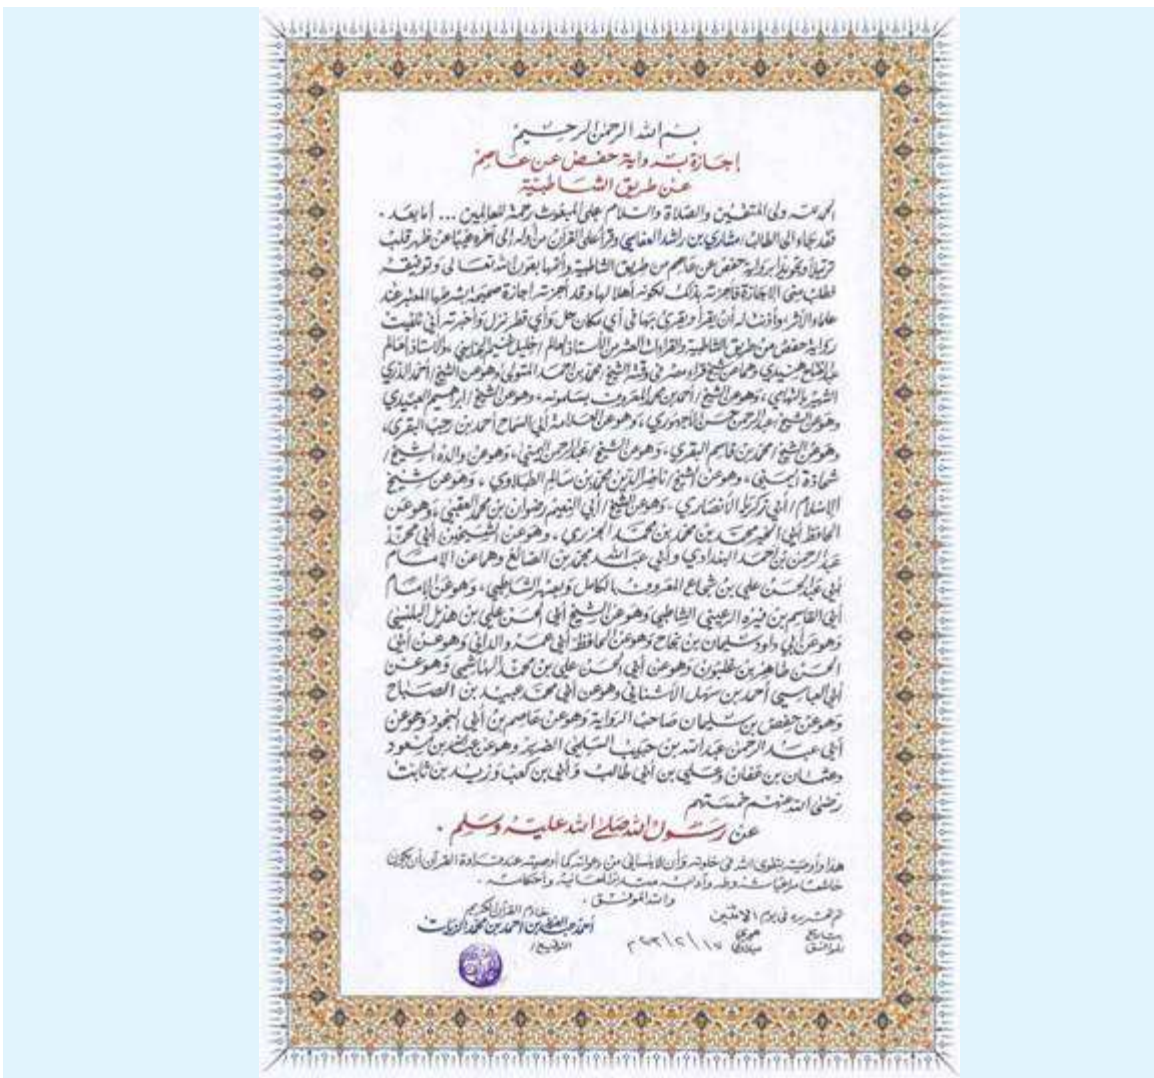 بسم الله الرحمن الرحيم
إجازة برواية حفص عن عاصم
عن طريق الشاطبية
الحمد لله ولي المتقين والصلاة والسلام على المبعوث رحمة للعالمين ... أما بعد .
فقد جاء إلى الطالب / مشاري بن راشد العفاسي وقرأ علي القرآن من أوله إلى آخره غيبا عن ظهر قلب
ترتيلا وتجويدا برواية حفص عن عاصم من طريق الشاطبية وأتمها بعون الله تعالى وتوفيقه
فطلب مني الاجازة فأجزته بذلك لكونه أهلا لها وقد أجزته اجازة صحيحة بشرطها المعتبر عند
علماء الأثر، وأذنت له أن يقرأ ويقرئ بها في أي مكان حل وأي قطر نزل وأخبرته أني تلقيت
رواية حفص من طريق الشاطبية والقراءات العشر من الأستاذ العالم / خليل غنيم الجنايني ، والأستاذ العالم
عبد الفتاح هنيدي وهما عن شيخ قراء مصر في وقته الشيخ / محمد بن احمد المتولي وهو عن الشيخ / أحمد الدري
الشهير بالتهامي ، وهو عن الشيخ / أحمد بن محمد المعروف بسلمونه ، وهو عن الشيخ / ابراهيم العبيدي
وهو عن الشيخ / عبد الرحمن حسن الأجهوري ، وهو عن العلامة أبي السماح احمد بن رجب البقري ،
وهو عن الشيخ / محمد بن قاسم البقري ، وهو عن الشيخ / عبد الرحمن اليمني ، وهو عن والده الشيخ /
شحاذة اليمني ، وهو عن الشيخ / ناصر الدين محمد بن سالم الطبلاوي ، وهو عن شيخ
الإسلام / أبي زكريا الأنصاري ، وهو عن الشيخ / أبي النعيم رضوان بن محمد العقبي ، وهو عن
الحافظ أبي الخير محمد بن محمد بن محمد الجزري ، وهو عن الشيخين أبي محمد
عبد الرحمن بن أحمد البغدادي وأبي عبد الله محمد بن الصائغ وهما عن الامام
أبي عبد الحسن علي بن شجاع المعروف بالكامل وبصهر الشاطبي ، وهو عن الإمام
أبي القاسم بن فيره الرعيني الشاطبي وهو عن الشيخ أبي الحسن علي بن هذيل البلنسي
وهو عن أبي داود سليمان بن نجاح وهو عن الحافظ أبي عمرو الداني وهو عن أبي
الحسن طاهر بن غلبون وهو عن أبي الحسن علي بن محمد الهاشمي وهو عن
أبي العباسي أحمد بن سهل الأشناني وهو عن أبي محمد عبيد بن الصباح
وهو عن حفص بن سليمان صاحب الرواية وهو عن عاصم بن أبي النجود وهو عن
أبي عبد الرحمن عبد الله بن حبيب السلمي الضرير وهو عن عبد الله بن مسعود
وعثمان بن عفان وعلي بن أبي طالب وأبي بن كعب وزيد بن ثابت
رضي الله عنهم خمستهم
عن رسول الله صلى الله عليه وسلم .
هذا وأوصيته بتقوى الله في خلوته وأن لا ينساني من دعواته كما أوصيته عند قراءة القرآن أن يكون
خاشعا مراعيا شروطه وآدابه متدبرا لمعانيه وأحكامه .
والله الموفق .
تم تحريره في يوم الاثنين
خادم القرآن الكريم
بتاريخ هجري
أحمد عبد العزيز بن احمد بن محمد الزيات
الموافق ميلادي
التوقيع /